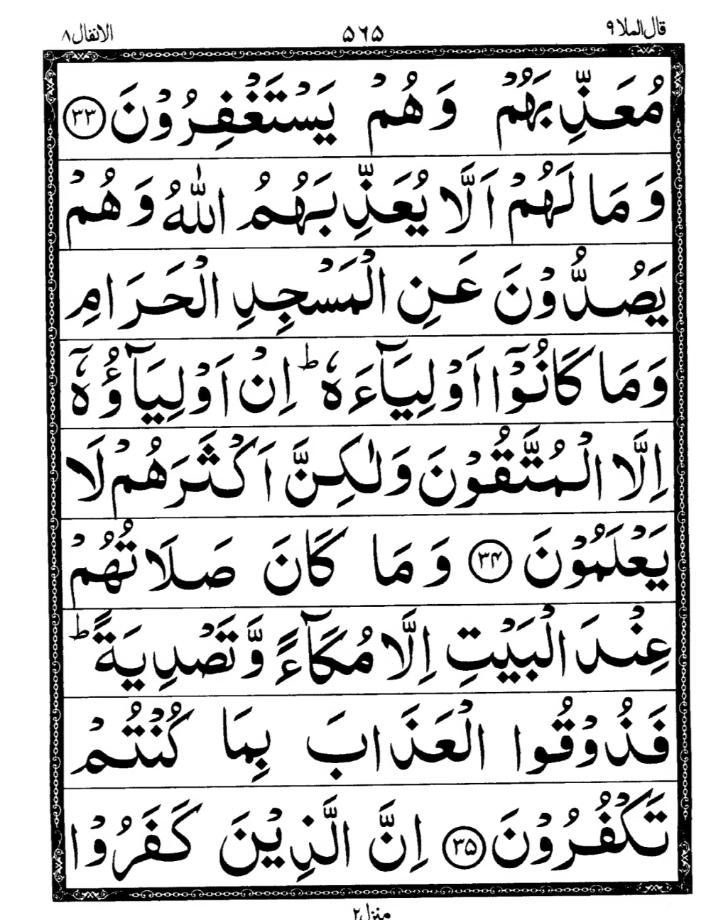 قال الملا ۹ ۵۶۵ الانفال ۸
مُعَذِّبَهُمْ وَهُمْ يَسْتَغْفِرُوْنَ ﴿۳۳﴾
وَمَا لَهُمْ اَلَّا يُعَذِّبَهُمُ اللّٰهُ وَهُمْ
يَصُدُّوْنَ عَنِ الْمَسْجِدِ الْحَرَامِ
وَمَا كَانُوْۤا اَوْلِيَآءَهٗ ؕ اِنْ اَوْلِيَآؤُهٗۤ
اِلَّا الْمُتَّقُوْنَ وَلٰكِنَّ اَكْثَرَهُمْ لَا
يَعْلَمُوْنَ ﴿۳۴﴾ وَمَا كَانَ صَلَاتُهُمْ
عِنْدَ الْبَيْتِ اِلَّا مُكَآءً وَّتَصْدِيَةً ؕ
فَذُوْقُوا الْعَذَابَ بِمَا كُنْتُمْ
تَكْفُرُوْنَ ﴿۳۵﴾ اِنَّ الَّذِيْنَ كَفَرُوْا
منزل ۲